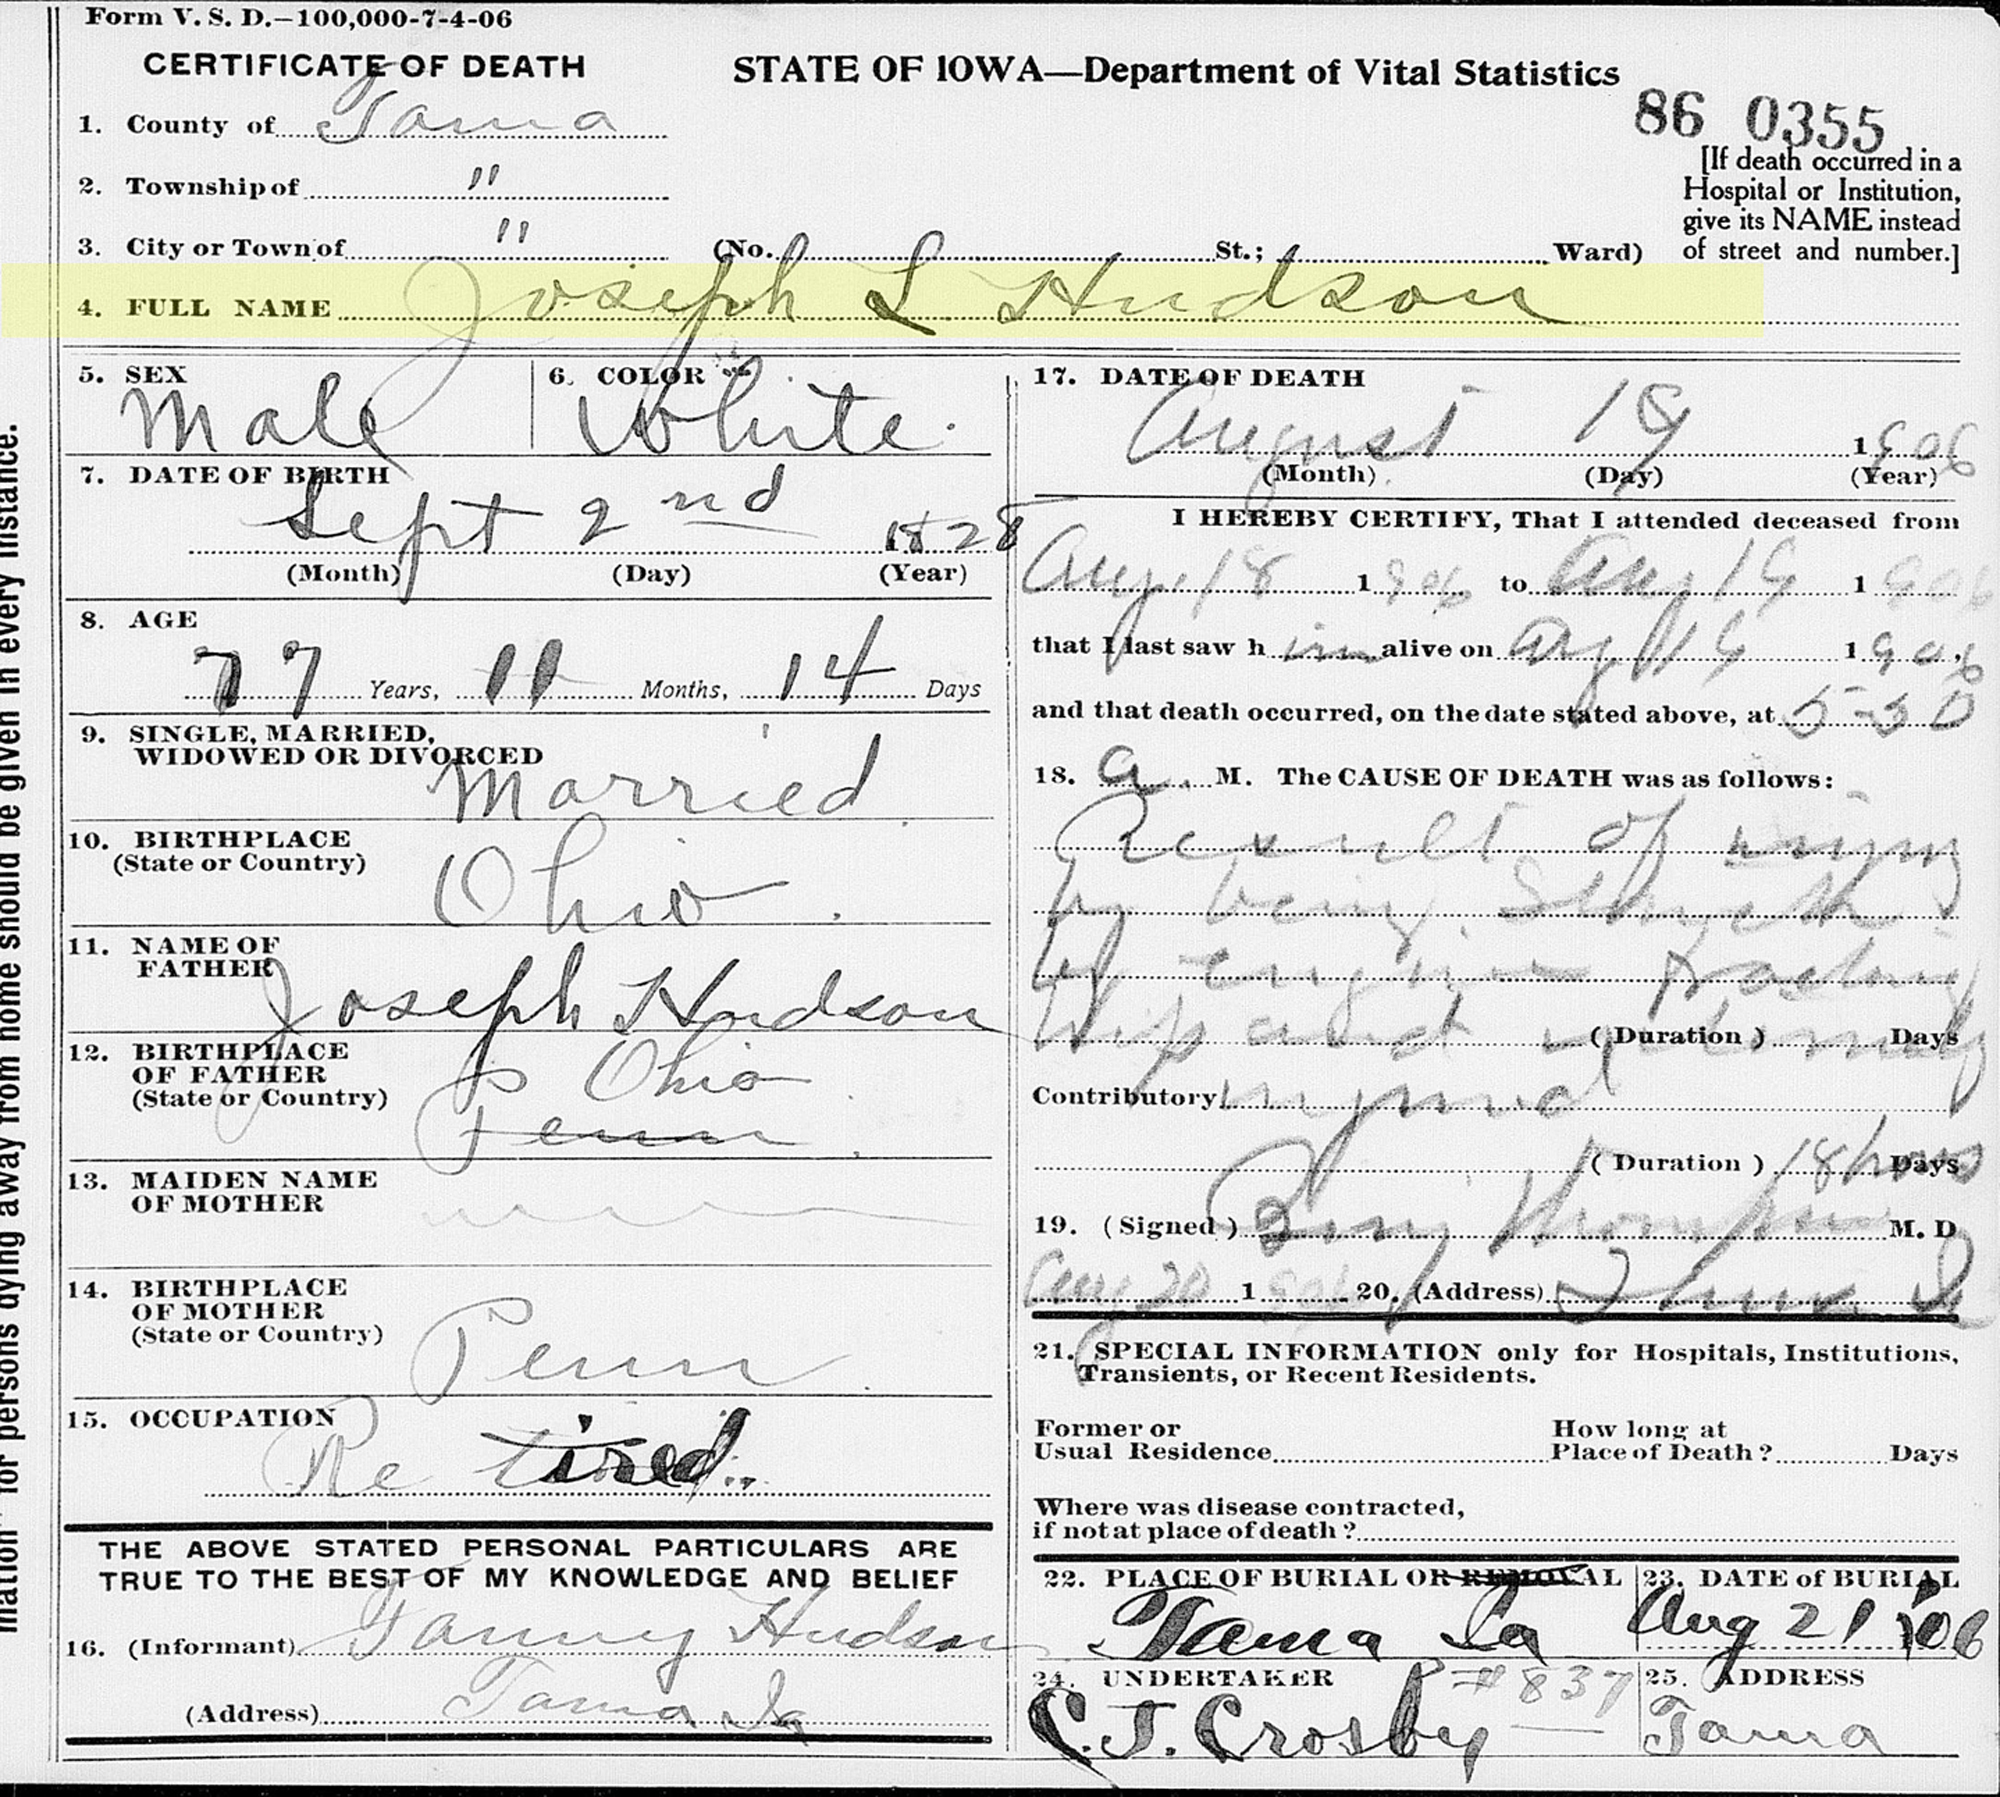 Form V. S. D.—100,000-7-4-06
CERTIFICATE OF DEATH
STATE OF IOWA—Department of Vital Statistics
86 0355
1. County of Tama
2. Township of "
3. City or Town of " (No. St.; Ward)
[If death occurred in a
Hospital or Institution,
give its NAME instead
of street and number.]
4. FULL NAME Joseph L Hudson
5. SEX
Male
6. COLOR
White
7. DATE OF BIRTH
Sept 2nd 1828
(Month) (Day) (Year)
8. AGE
77 Years, 11 Months, 14 Days
9. SINGLE, MARRIED,
WIDOWED OR DIVORCED
Married
10. BIRTHPLACE
(State or Country)
Ohio
11. NAME OF
FATHER
Joseph Hudson
12. BIRTHPLACE
OF FATHER
(State or Country)
Ohio
Penn
13. MAIDEN NAME
OF MOTHER
14. BIRTHPLACE
OF MOTHER
(State or Country)
Penn
15. OCCUPATION
Retired
THE ABOVE STATED PERSONAL PARTICULARS ARE
TRUE TO THE BEST OF MY KNOWLEDGE AND BELIEF
16. (Informant) Fanny Hudson
(Address) Tama Ia
17. DATE OF DEATH
August 19 1906
(Month) (Day) (Year)
I HEREBY CERTIFY, That I attended deceased from
Aug 18 1906 to Aug 19 1906
that I last saw h im alive on Aug 19 1906,
and that death occurred, on the date stated above, at 5-30
18. a. M. The CAUSE OF DEATH was as follows:
Result of injury
by being Struck
by engine
hip and (Duration) Days
Contributory injured
(Duration) 18 hours Days
19. (Signed) Thompson M. D
Aug 20 1906 20. (Address) Tama Ia
21. SPECIAL INFORMATION only for Hospitals, Institutions,
Transients, or Recent Residents.
Former or
Usual Residence
How long at
Place of Death? Days
Where was disease contracted,
if not at place of death?
22. PLACE OF BURIAL OR REMOVAL
Tama Ia
23. DATE of BURIAL
Aug 21 1906
24. UNDERTAKER #837
C. J. Crosby
25. ADDRESS
Tama
mation for persons dying away from home should be given in every instance.